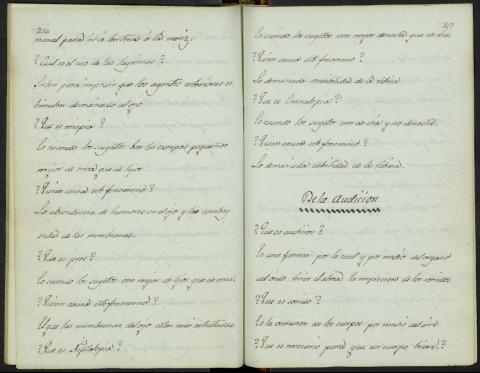 216
nasal para ir á besteria ó la nariz.
? Cual es el uso de las lagrimas ?
Sirven para impedir que los agentes esteriores es
timulen demasiado al ojo
? Que es miopia ?
Es cuando los sugetos ven los cuerpos pequeños
mejor de cerca que de lejos.
? Quien causa este fenomeno ?
La abundancia de humores en el ojo y la convexi
sidad de las membranas.
? Que es pres ?
Es cuando los sugetos ven mejor de lejos que de cerca.
? Quien causa este fenomeno ?
El que las membranas del ojo esten mas
? Que es Niptalopia ?
217
Es cuando los sugetos ven mejor de noche que de dia.
? Quien causa este fenomeno ?
La demasiada sensibilidad de la retina.
? Que es Emeralopia ?
Es cuando los sugetos ven de dia y no de noche.
? Quien causa este fenomeno ?
La demasiada debilidad de la retina.
De la Audicion
? Que es audicion ?
Es una funcion por la cual y por medio del organo
del oido recive el alma la impresion de los sonidos
? Que es sonido ?
Es la de los cuerpos por medio del aire.
? Que es necesario para que un cuerpo vibre ?